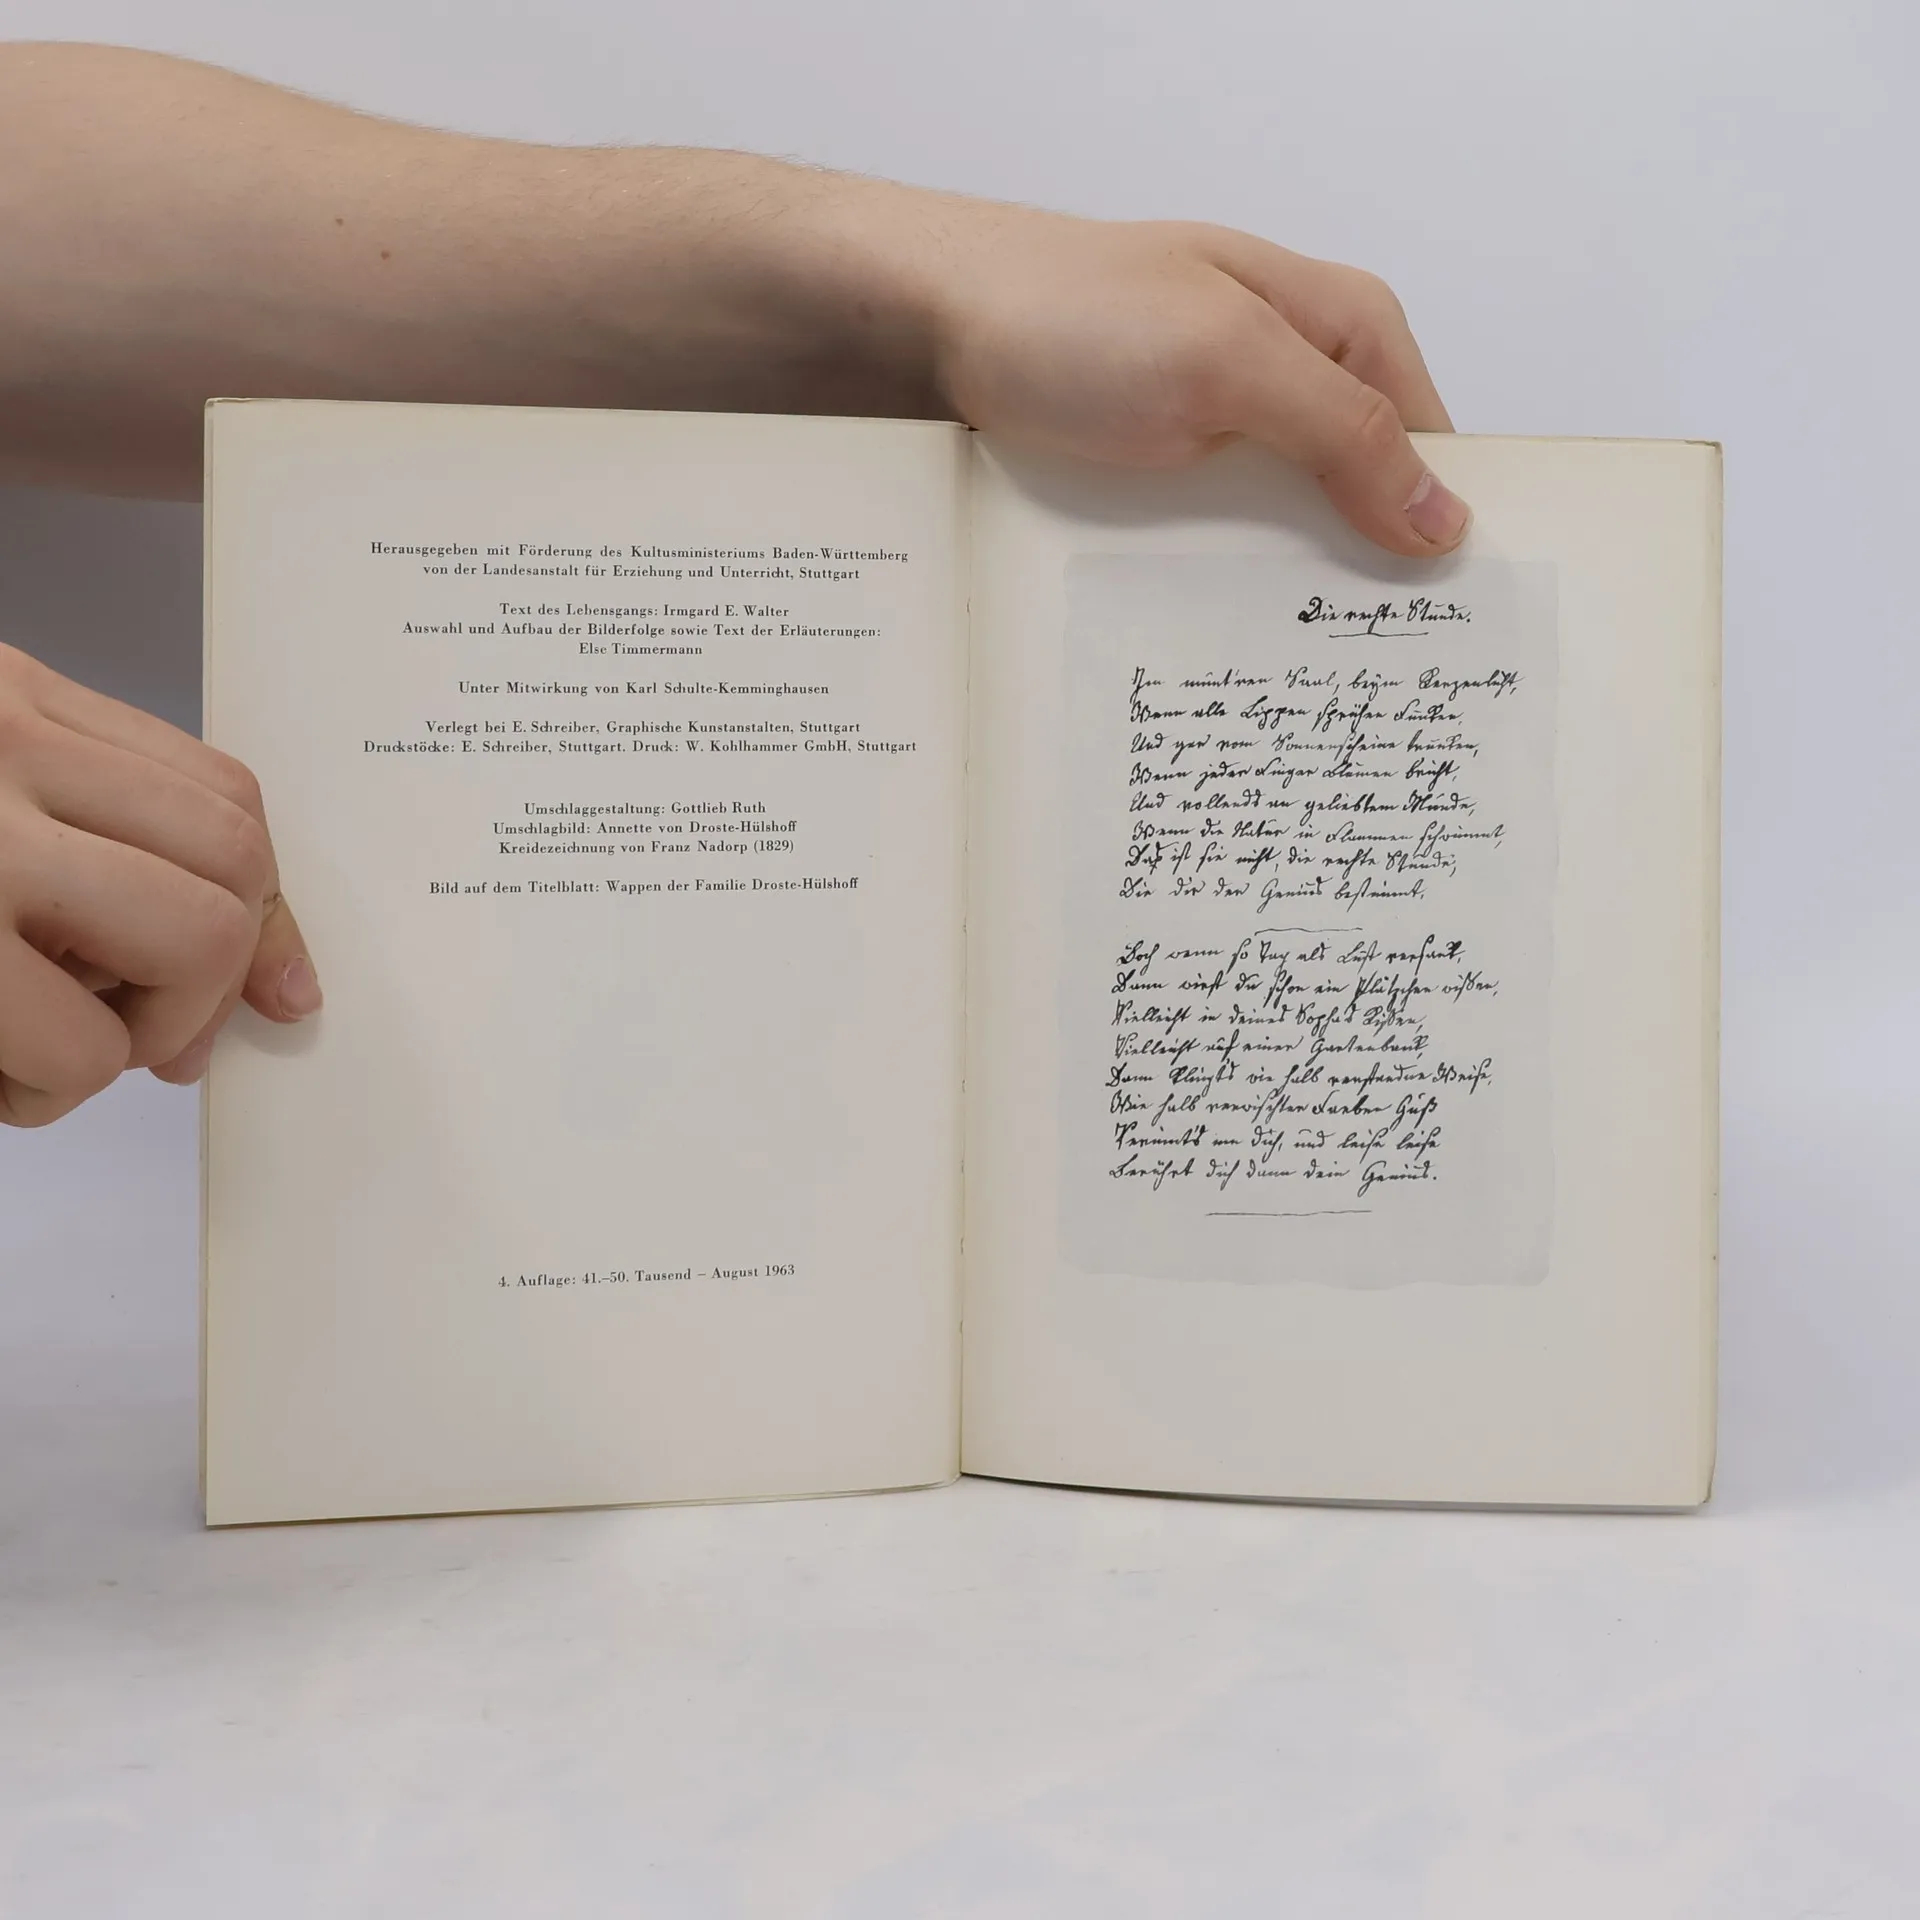 Herausgegeben mit Förderung des Kultusministeriums Baden-Württemberg
von der Landesanstalt für Erziehung und Unterricht, Stuttgart
Text des Lebensgangs: Irmgard E. Walter
Auswahl und Aufbau der Bilderfolge sowie Text der Erläuterungen:
Else Timmermann
Unter Mitwirkung von Karl Schulte-Kemminghausen
Verlegt bei E. Schreiber, Graphische Kunstanstalten, Stuttgart
Druckstöcke: E. Schreiber, Stuttgart. Druck: W. Kohlhammer GmbH, Stuttgart
Umschlaggestaltung: Gottlieb Ruth
Umschlagbild: Annette von Droste-Hülshoff
Kreidezeichnung von Franz Nadorp (1829)
Bild auf dem Titelblatt: Wappen der Familie Droste-Hülshoff
4. Auflage: 41.–50. Tausend – August 1963
Die rechte Stunde.
Im munt'ren Saal, beym Kerzenlicht,
Wenn alle Lippen sprühen Funken,
Und gar vom Sonnenscheine trunken,
Wenn jeder Finger Blumen bricht,
Und vollends an geliebtem Munde,
Wenn die Natur in Flammen schwimmt,
Das ist sie nicht, die rechte Stunde,
Die dir der Genius bestimmt.
Doch wenn so Tag als Lust versank,
Dann wirst du schon ein Plätzchen wissen,
Vielleicht in deines Sophas Kissen,
Vielleicht auf einer Gartenbank,
Dann klingt's wie halb verstandne Weise,
Wie halb verwischter Farben Guß
Verrinnt's um dich, und leise leise
Berührt dich dann dein Genius.